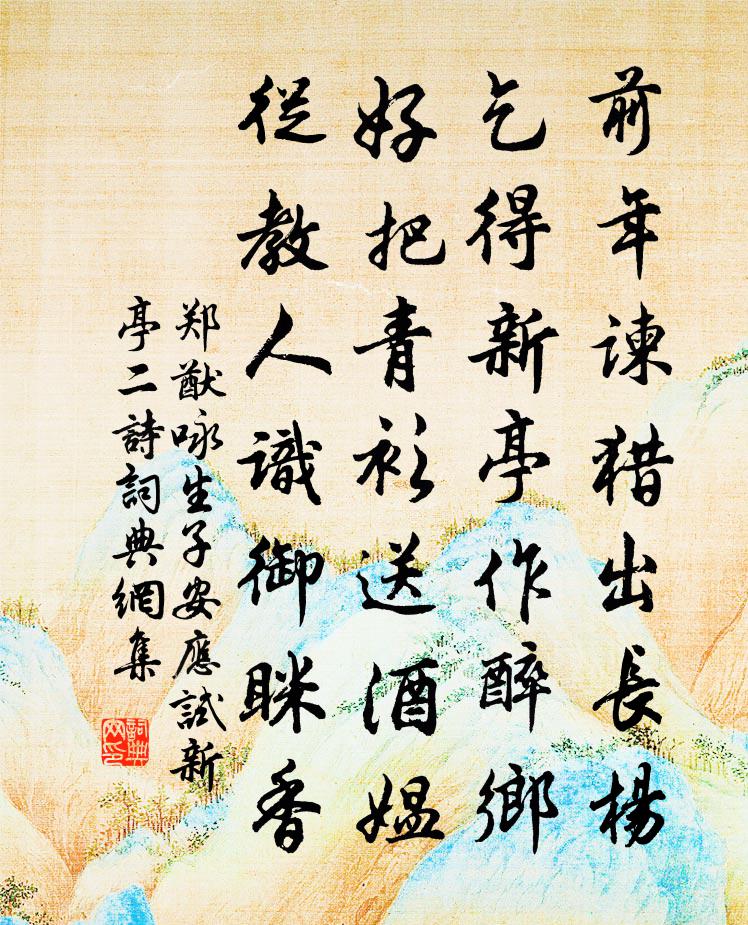 前年諫猎出長楊
乞得新亭作醉鄉
好把青衫送酒媼
從教人識御眯香
郑猷咏生子安應試新
亭二詩詞典網集
詞典
网印